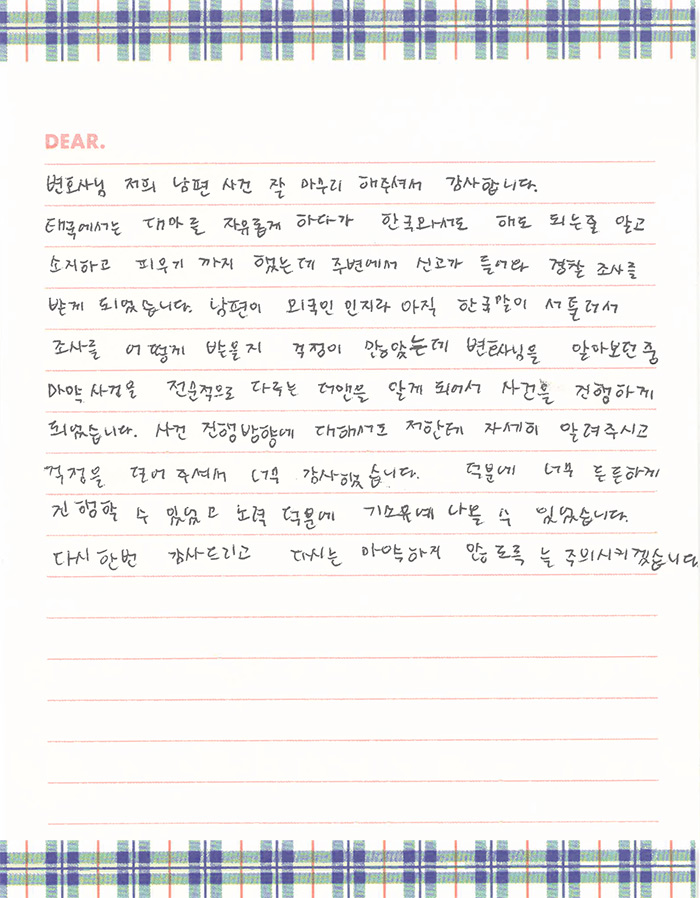 DEAR.
변호사님 저희 남편 사건 잘 마무리 해주셔서 감사합니다.
태국에서는 대마를 자유롭게 하다가 한국와서도 해도 되는줄 알고
소지하고 피우기 까지 했는데 주변에서 신고가 들어와 경찰 조사를
받게 되었습니다. 남편이 외국인 인지라 아직 한국말이 서툴러서
조사를 어떻게 받을지 걱정이 많았는데 변호사님을 알아보던 중
마약 사건을 전문적으로 다루는 더앤을 알게 되어서 사건을 진행하게
되었습니다. 사건 진행방향에 대해서도 저한테 자세히 알려주시고
걱정을 덜어 주셔서 너무 감사했습니다. 덕분에 너무 든든하게
진행할 수 있었고 노력 덕분에 기소유예 나올 수 있었습니다.
다시 한번 감사드리고 다시는 마약하지 않도록 늘 주의시키겠습니다